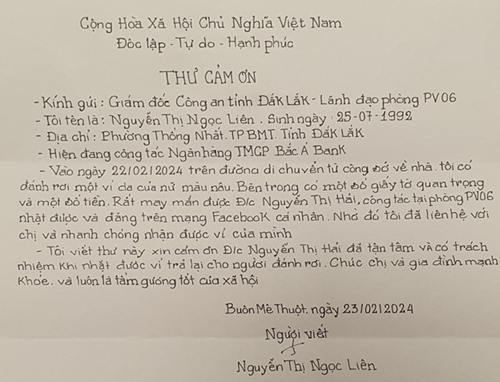 Cộng Hòa Xã Hội Chủ Nghĩa Việt Nam
Độc lập - Tự do - Hạnh phúc
THƯ CẢM ƠN
- Kính gửi: Giám đốc Công an tỉnh Đắk Lắk - Lãnh đạo phòng PV06
- Tôi tên là: Nguyễn Thị Ngọc Liên. Sinh ngày: 25-07-1992
- Địa chỉ: Phường Thống Nhất. TP BMT. Tỉnh Đắk Lắk
- Hiện đang công tác Ngân hàng TMCP Bắc Á Bank
- Vào ngày 22/02/2024 trên đường di chuyển từ công sở về nhà. tôi có
đánh rơi một ví da của nữ màu nâu. Bên trong có một số giấy tờ quan trọng
và một số tiền. Rất may mắn được Đ/c Nguyễn Thị Hải, công tác tại phòng PV06
nhặt được và đăng trên mạng Facebook cá nhân. Nhờ đó tôi đã liên hệ với
chị và nhanh chóng nhận được ví của mình
- Tôi viết thư này xin cảm ơn Đ/c Nguyễn Thị Hải đã tận tâm và có trách
nhiệm khi nhặt được ví trả lại cho người đánh rơi. Chúc chị và gia đình mạnh
khỏe. và luôn là tấm gương tốt của xã hội
Buôn Mê Thuột, ngày 23/02/2024
Người viết
Nguyễn Thị Ngọc Liên